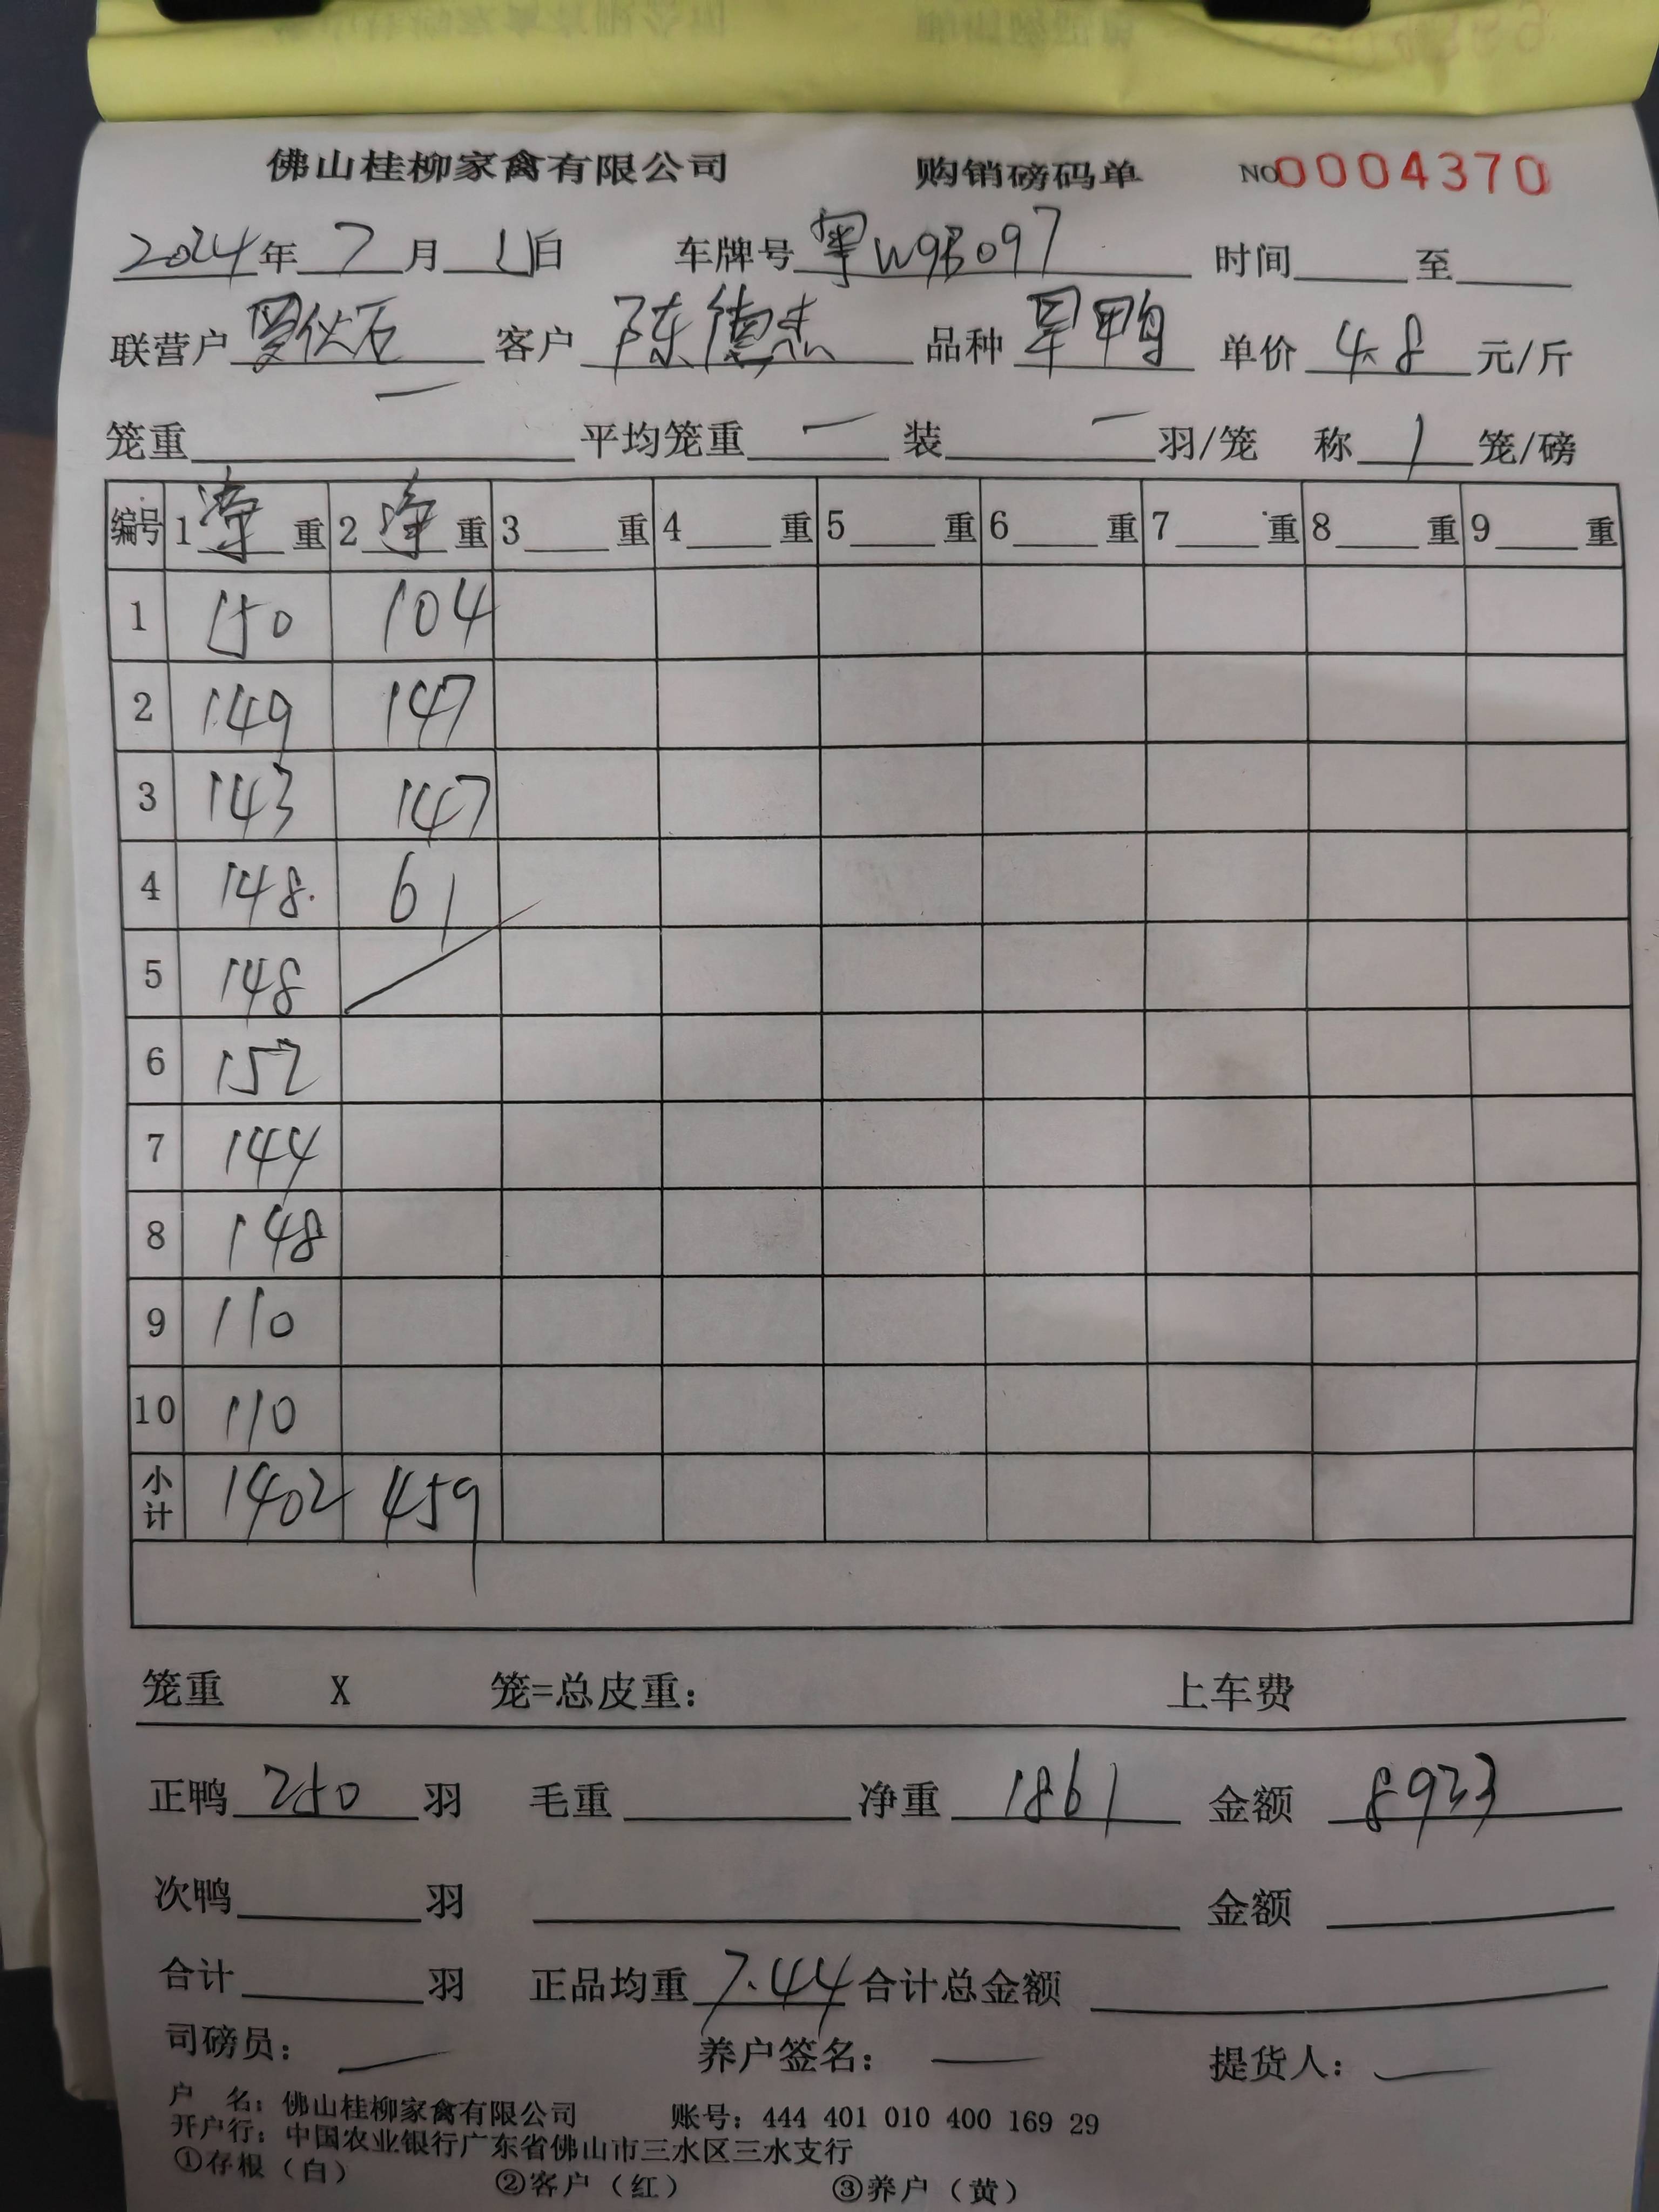 佛山桂柳家禽有限公司 购销磅码单 NO0004370
2024年 7 月 日 车牌号 粤W9B097 时间 至
联营户 罗伙石 客户 陈德杰 品种 旱鸭 单价 4.8 元/斤
笼重 一 平均笼重 一 装 一 羽/笼 称 1 笼/磅
编号 1 净 重 2 净 重 3 重 4 重 5 重 6 重 7 重 8 重 9 重
1 150 104
2 149 147
3 143 147
4 148 61
5 148
6 152
7 144
8 148
9 110
10 110
小计 1402 459
笼重 X 笼=总皮重: 上车费
正鸭 250 羽 毛重 净重 1861 金额 8933
次鸭 羽 金额
合计 羽 正品均重 7.44 合计总金额
司磅员: 一 养户签名: 一 提货人: 一
户 名: 佛山桂柳家禽有限公司 账号: 444 401 010 400 169 29
开户行: 中国农业银行广东省佛山市三水区三水支行
①存根(白) ②客户(红) ③养户(黄)